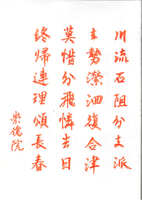 川流石阻分支派
主勢瀠洄復合津
莫惜分飛憐去日
終歸連理頌長春
崇德院